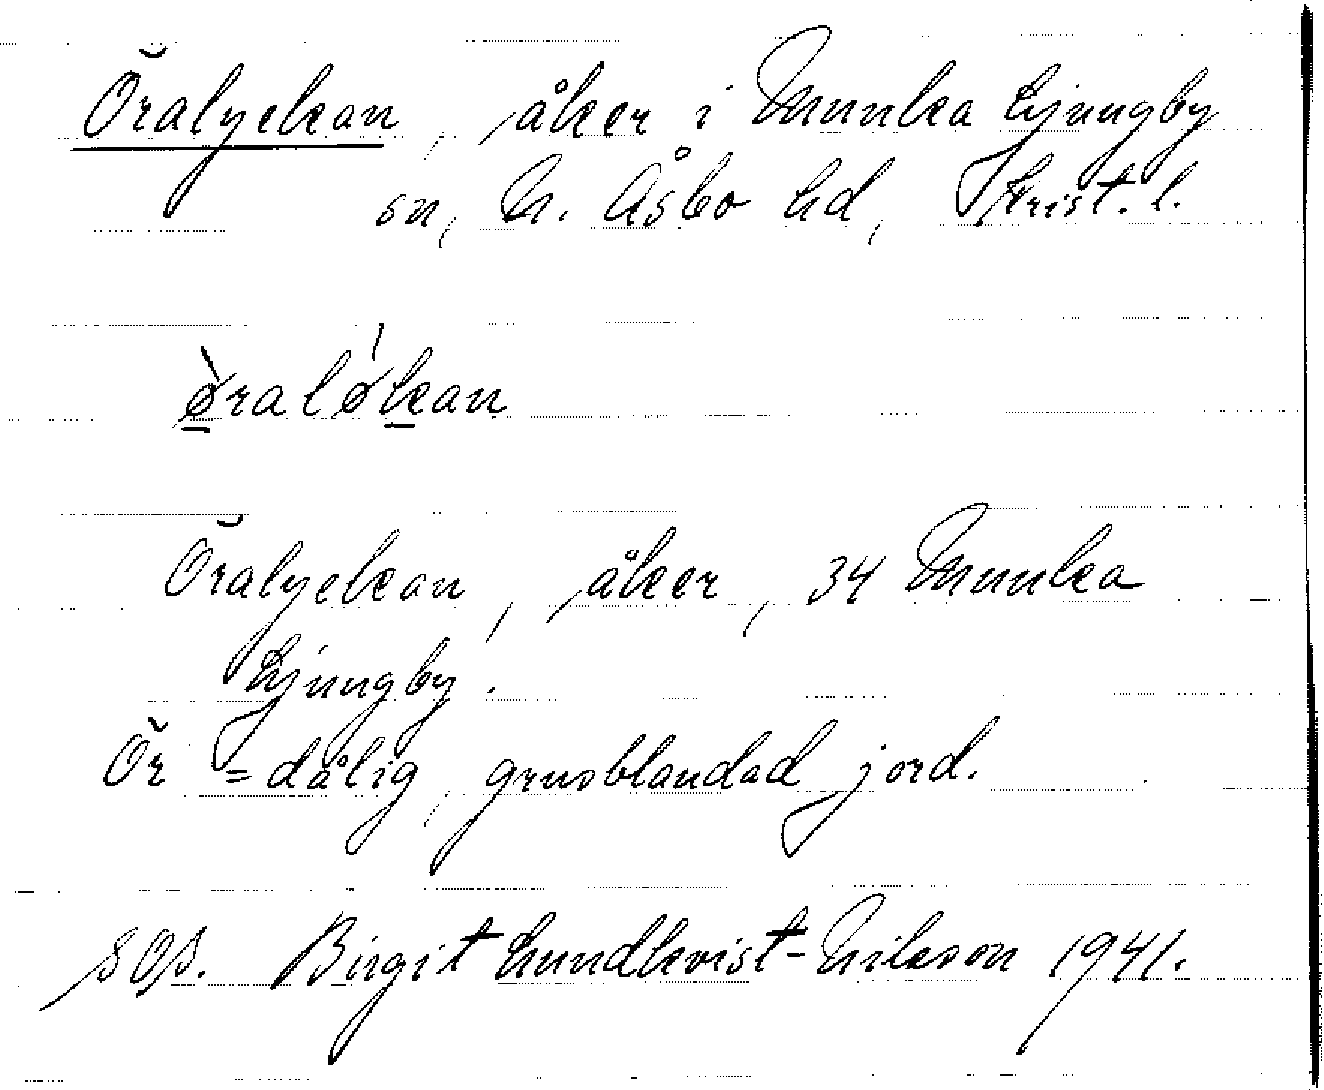 Öralyckan, åker i Munka Ljungby
sn, N. Åsbo hd, Krist. l.
ø̀raló̷kan
Öralyckan, åker, 34 Munka
Ljungby.
Ör = dålig, grusblandad jord.
SOS. Birgit Lundkvist-Nilsson 1941.